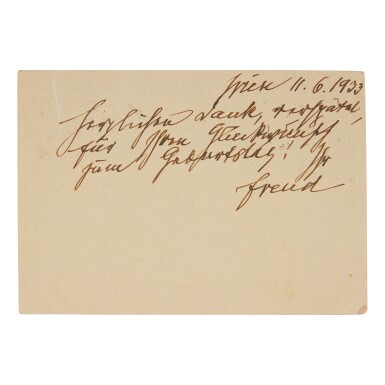 Wien 11.6.1933
Herzlichen Dank, verspätet,
für Ihren Glückwunsch
zum Geburtstag! Ihr
Freud